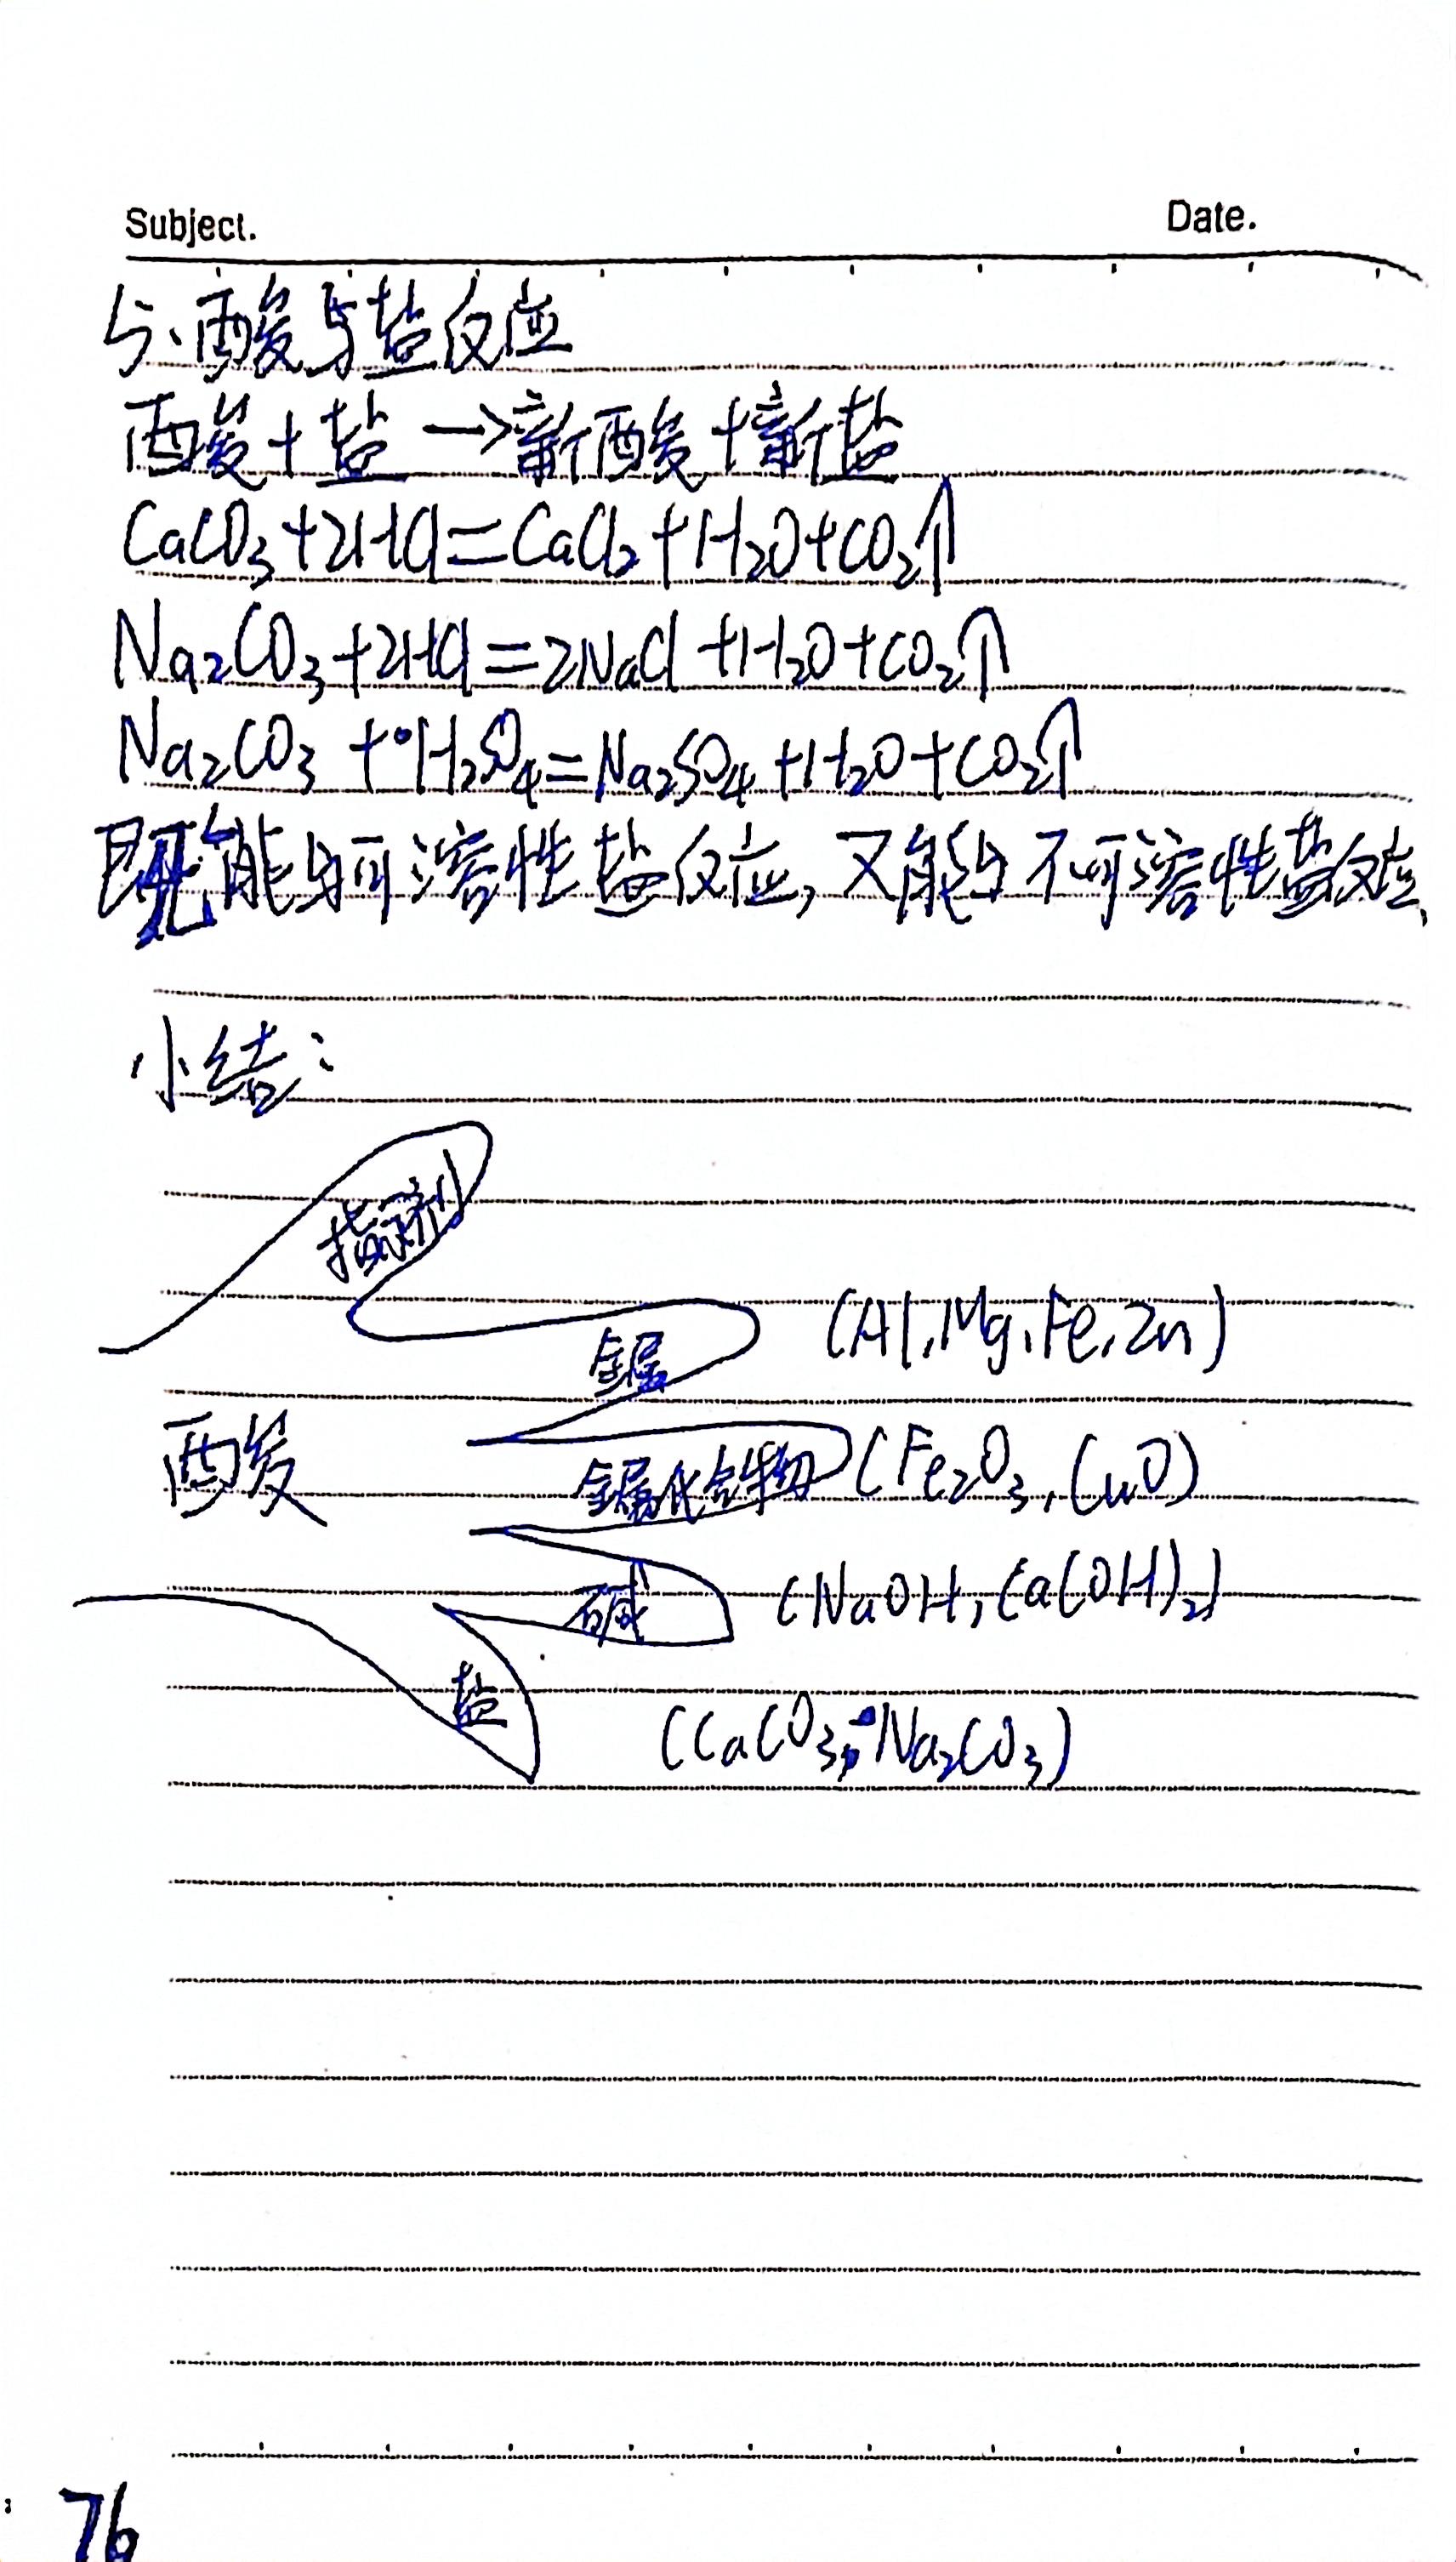 Subject.
Date.
5、酸与盐反应
酸+盐→新酸+新盐
CaCO₃+2HCl=CaCl₂+H₂O+CO₂↑
Na₂CO₃+2HCl=2NaCl+H₂O+CO₂↑
Na₂CO₃+H₂SO₄=Na₂SO₄+H₂O+CO₂↑
既能与可溶性盐反应,又能与不可溶性盐反应、
小结:
指示剂
金属 (Al,Mg,Fe,Zn)
酸
金属化合物 (Fe₂O₃,CuO)
碱 (NaOH,Ca(OH)₂)
盐 (CaCO₃,Na₂CO₃)
76